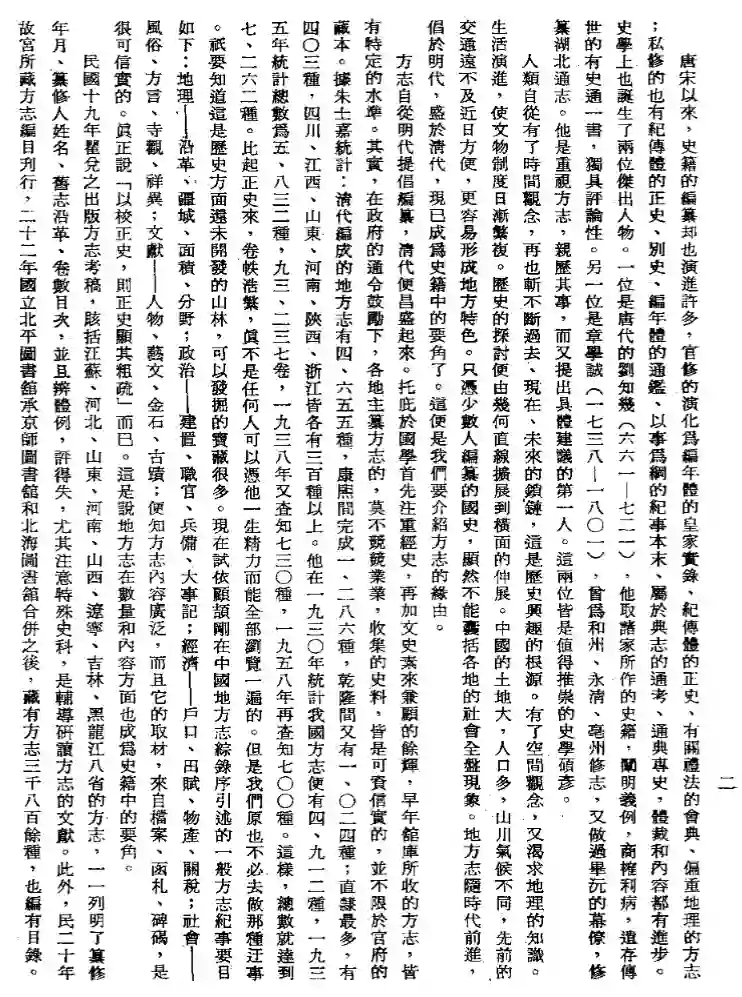 二
唐宋以來，史籍的編纂却也演進許多，官修的演化爲編年體的皇家實錄、紀傳體的正史、有關禮法的會典、偏重地理的方志
；私修的也有紀傳體的正史、別史、編年體的通鑑、以事爲綱的紀事本末、屬於典志的通考、通典專史，體裁和內容都有進步。
史學上也誕生了兩位傑出人物。一位是唐代的劉知幾（六六一—七二一），他取諸家所作的史籍，闡明義例，商榷利病，遺存傳
世的有史通一書，獨具評論性。另一位是章學誠（一七三八—一八〇一），曾爲和州、永清、亳州修志，又做過畢沅的幕僚，修
纂湖北通志。他是重視方志，親歷其事，而又提出具體建議的第一人。這兩位皆是值得推崇的史學碩彥。
人類自從有了時間觀念，再也斬不斷過去、現在、未來的鎖鏈，這是歷史興趣的根源。有了空間觀念，又渴求地理的知識。
生活演進，使文物制度日漸繁複。歷史的探討便由幾何直線擴展到橫面的伸展。中國的土地大，人口多，山川氣候不同，先前的
交通遠不及近日方便，更容易形成地方特色。只憑少數人編纂的國史，顯然不能囊括各地的社會全盤現象。地方志隨時代前進，
倡於明代，盛於清代，現已成爲史籍中的要角了。這便是我們要介紹方志的緣由。
方志自從明代提倡編纂，清代便昌盛起來。托庇於國學首先注重經史，再加文史素來兼顧的餘輝，早年館庫所收的方志，皆
有特定的水準。其實，在政府的通令鼓勵下，各地主纂方志的，莫不兢兢業業，收集的史料，皆是可資信實的，並不限於官府的
藏本。據朱士嘉統計：清代編成的地方志有四、六五五種，康熙間完成一、二八六種，乾隆間又有一、〇二四種；直隸最多，有
四〇三種，四川、江西、山東、河南、陝西、浙江皆各有三百種以上。他在一九三〇年統計我國方志便有四、九一二種，一九三
五年統計總數爲五、八三二種，九三、二三七卷，一九三八年又查知七三〇種，一九五八年再查知七〇〇種。這樣，總數就達到
七、二六二種。比起正史來，卷帙浩繁，眞不是任何人可以憑他一生精力而能全部瀏覽一遍的。但是我們原也不必去做那種迂事
。祇要知道這是歷史方面還未開發的山林，可以發掘的寶藏很多。現在試依顧頡剛在中國地方志綜錄序引述的一般方志紀事要目
如下：地理——沿革、疆域、面積、分野；政治——建置、職官、兵備、大事記；經濟——戶口、田賦、物產、關稅；社會——
風俗、方言、寺觀、祥異；文獻——人物、藝文、金石、古蹟；便知方志內容廣泛，而且它的取材，來自檔案、函札、碑碣，是
很可信實的。眞正說「以校正史，則正史顯其粗疏」而已。這是說地方志在數量和內容方面也成爲史籍中的要角。
民國十九年瞿兌之出版方志考稿，賅括江蘇、河北、山東、河南、山西、遼寧、吉林、黑龍江八省的方志，一一列明了纂修
年月、纂修人姓名、舊志沿革、卷數目次，並且辨體例，評得失，尤其注意特殊史料，是輔導研讀方志的文獻。此外，民二十年
故宮所藏方志編目刊行，二十二年國立北平圖書館承京師圖書館和北海圖書館合併之後，藏有方志三千八百餘種，也編有目錄。